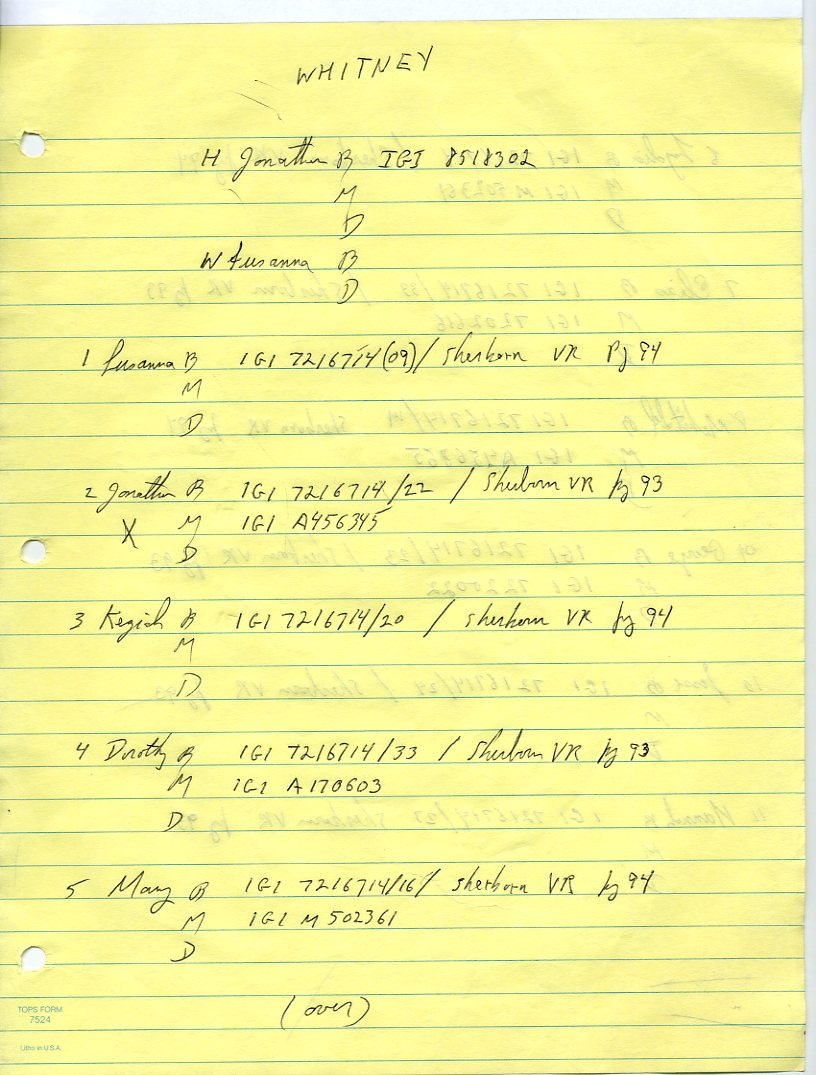 WHITNEY
H Jonathan B IGI 8518302
M
D
W Susanna B
D
1 Susanna B IGI 7216714(09)/ Sherborn VR Pg 94
M
D
2 Jonathan B IGI 7216714/22 / Sherborn VR pg 93
X M IGI A456345
D
3 Keziah B IGI 7216714/20 / Sherborn VR pg 94
M
D
4 Dorothy B IGI 7216714/33 / Sherborn VR pg 93
M IGI A170603
D
5 Mary B IGI 7216714/16/ Sherborn VR pg 94
M IGI M502361
D
(over)
TOPS FORM
7524
Litho in U.S.A.